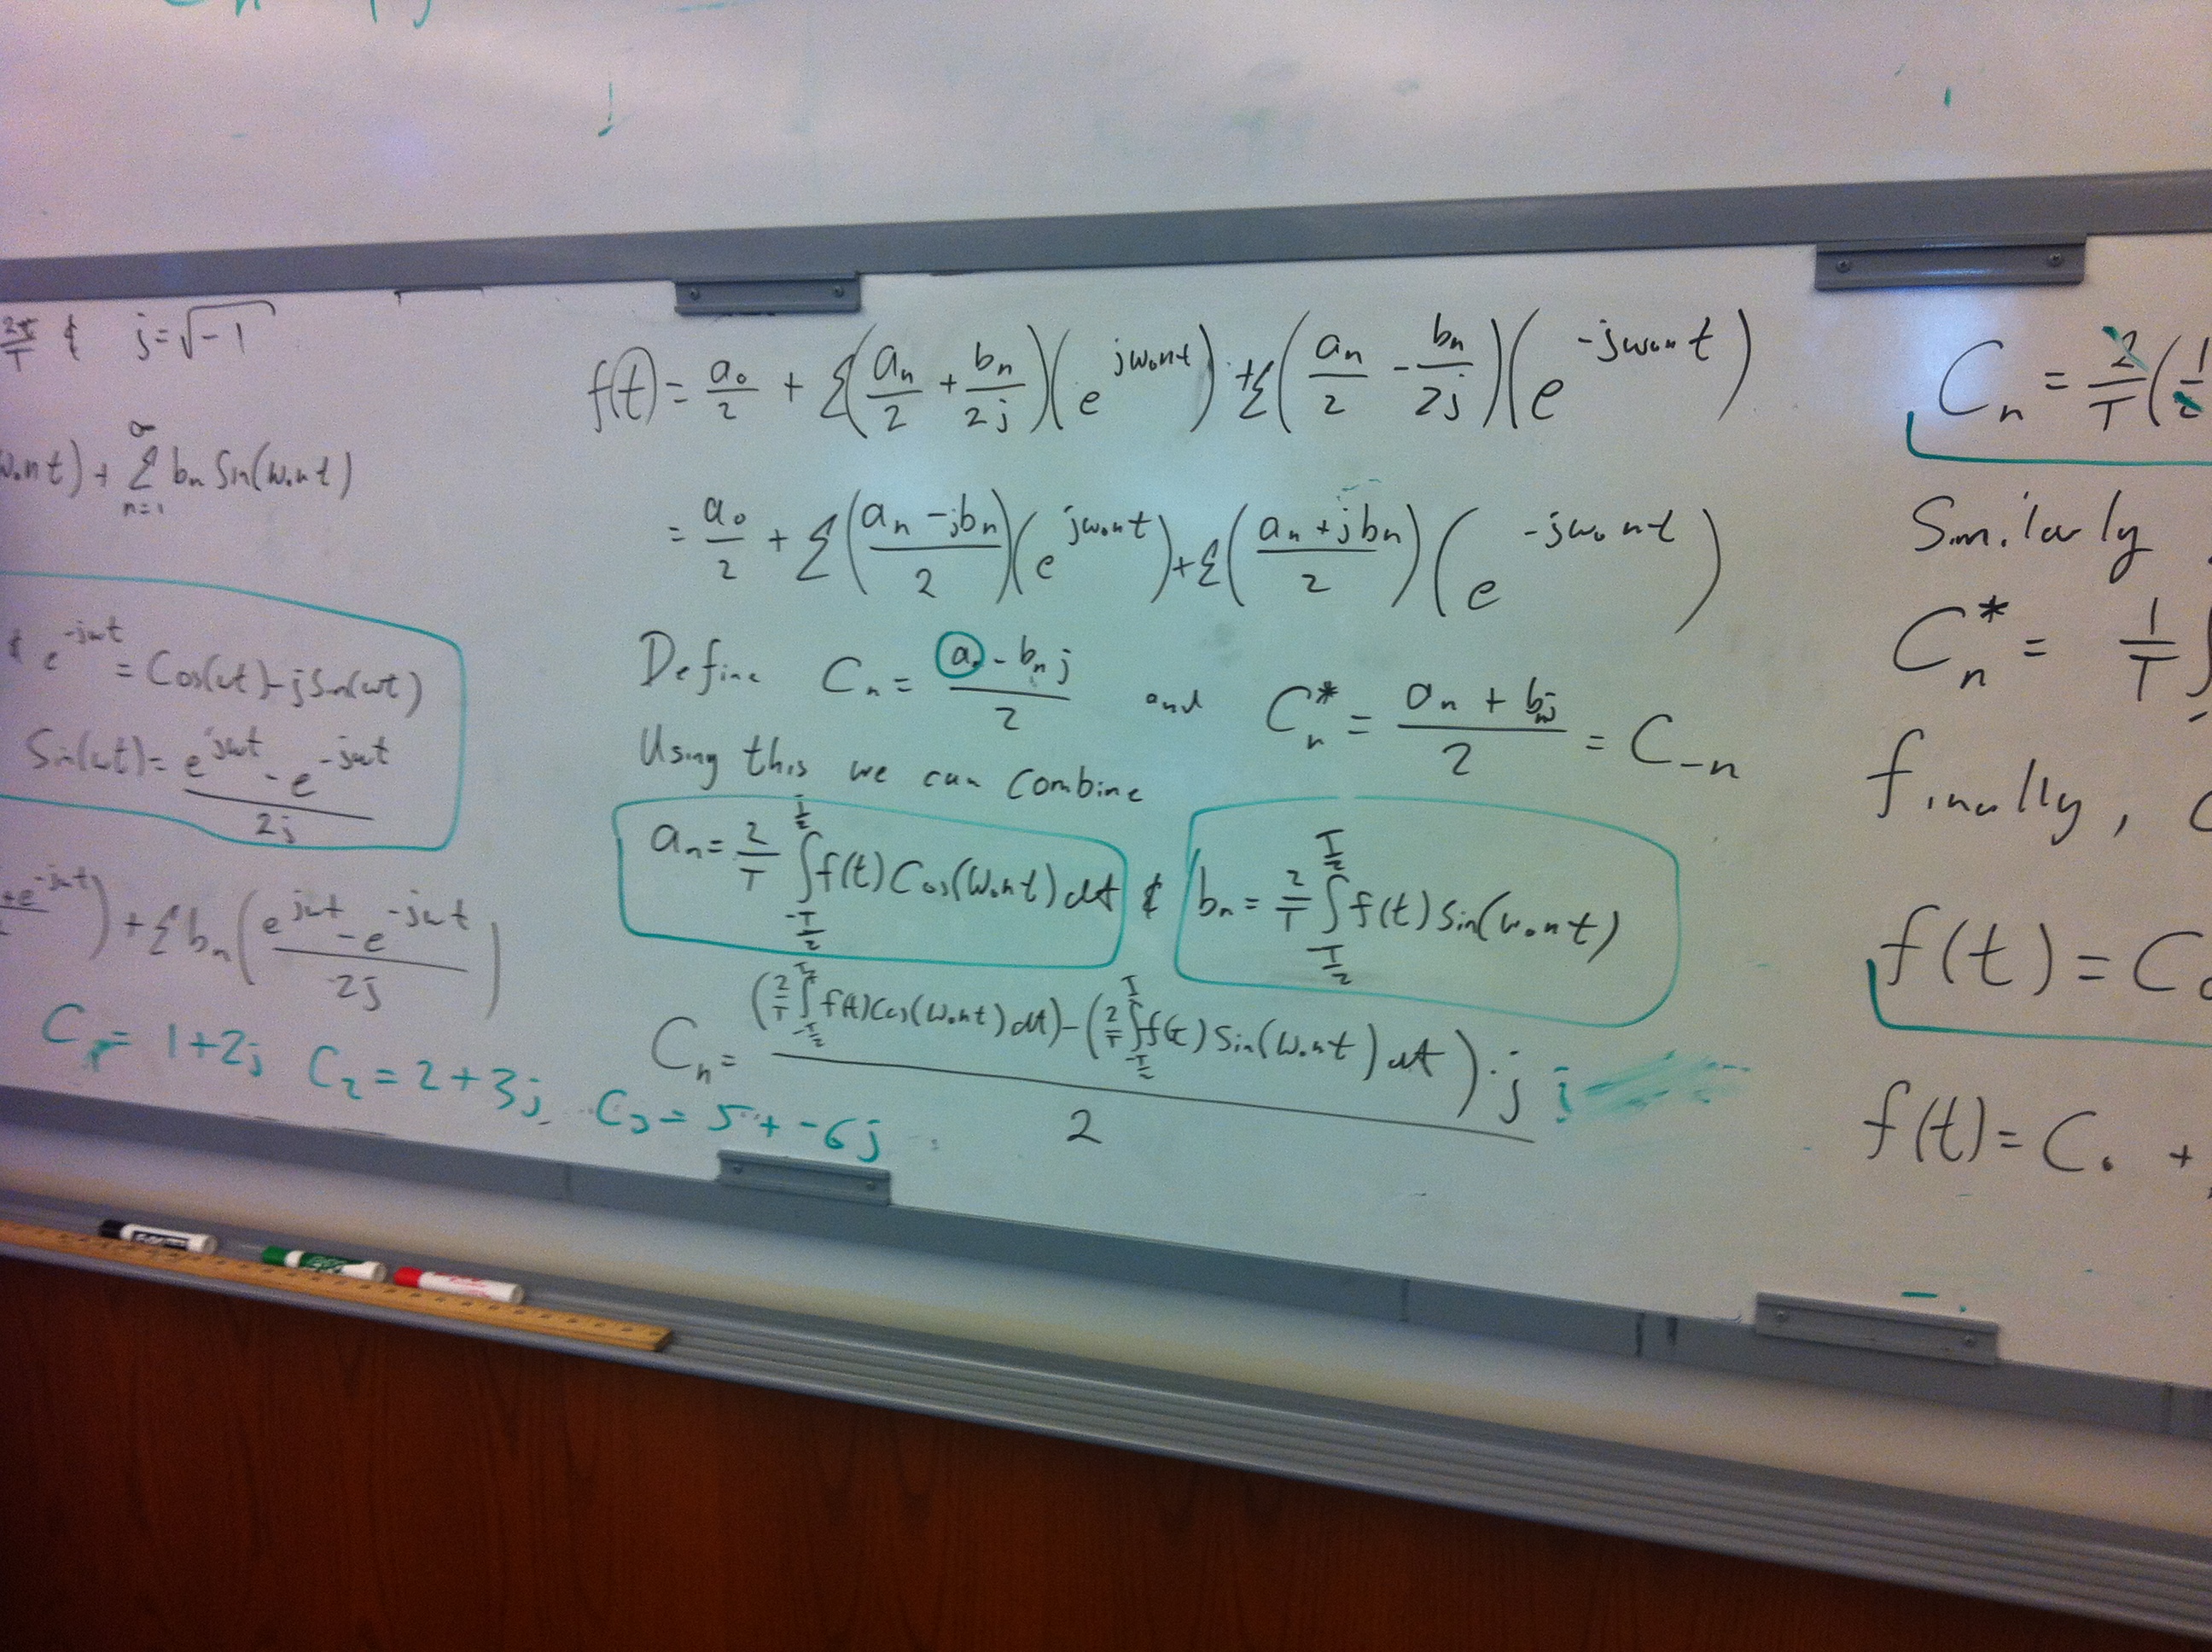 2π/T & j=√-1
ω₀nt) + Σ_{n=1}^{∞} bn Sin(ω₀nt)
& e^{-jωt} = Cos(ωt)-jSin(ωt)
Sin(ωt)= (e^{jωt} - e^{-jωt})/2j
+e^{-jωt}) + Σ bn ((e^{jωt} - e^{-jωt})/2j)
C₁= 1+2j C₂=2+3j C₃= 5+-6j
f(t)= a₀/2 + Σ(an/2 + bn/2j)(e^{jω₀nt}) + Σ(an/2 - bn/2j)(e^{-jω₀nt})
= a₀/2 + Σ((an -jbn)/2)(e^{jω₀nt}) + Σ((an +jbn)/2)(e^{-jω₀nt})
Define Cn = (an - bn j)/2 and Cn* = (an + bn j)/2 = C-n
Using this we can combine
an= 2/T ∫_{-T/2}^{T/2} f(t) Cos(ω₀nt) dt & bn= 2/T ∫_{-T/2}^{T/2} f(t) Sin(ω₀nt)
Cn= ((2/T ∫_{-T/2}^{T/2} f(t)Cos(ω₀nt) dt) - (2/T ∫_{-T/2}^{T/2} f(t) Sin(ω₀nt) dt)·j)/2 j
Cn = 2/T (1/2
Similarly
Cn* = 1/T ∫
finally, C
f(t) = C₀
f(t)= C₀ +